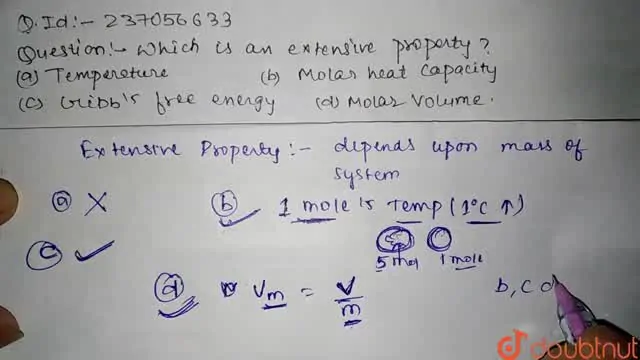 Q.Id:- 237056633
Question:- Which is an extensive property?
(a) Tempereture (b) Molar heat capacity
(c) Gibb's free energy (d) Molar Volume.
Extensive Property:- depends upon mass of
system
(a) ✗ (b) ✓ 1 mole is Temp (1°C ↑)
(c) ✓ 5 mol 1 mole
(d) ✓ Vm = V/m b, c d
doubtnut